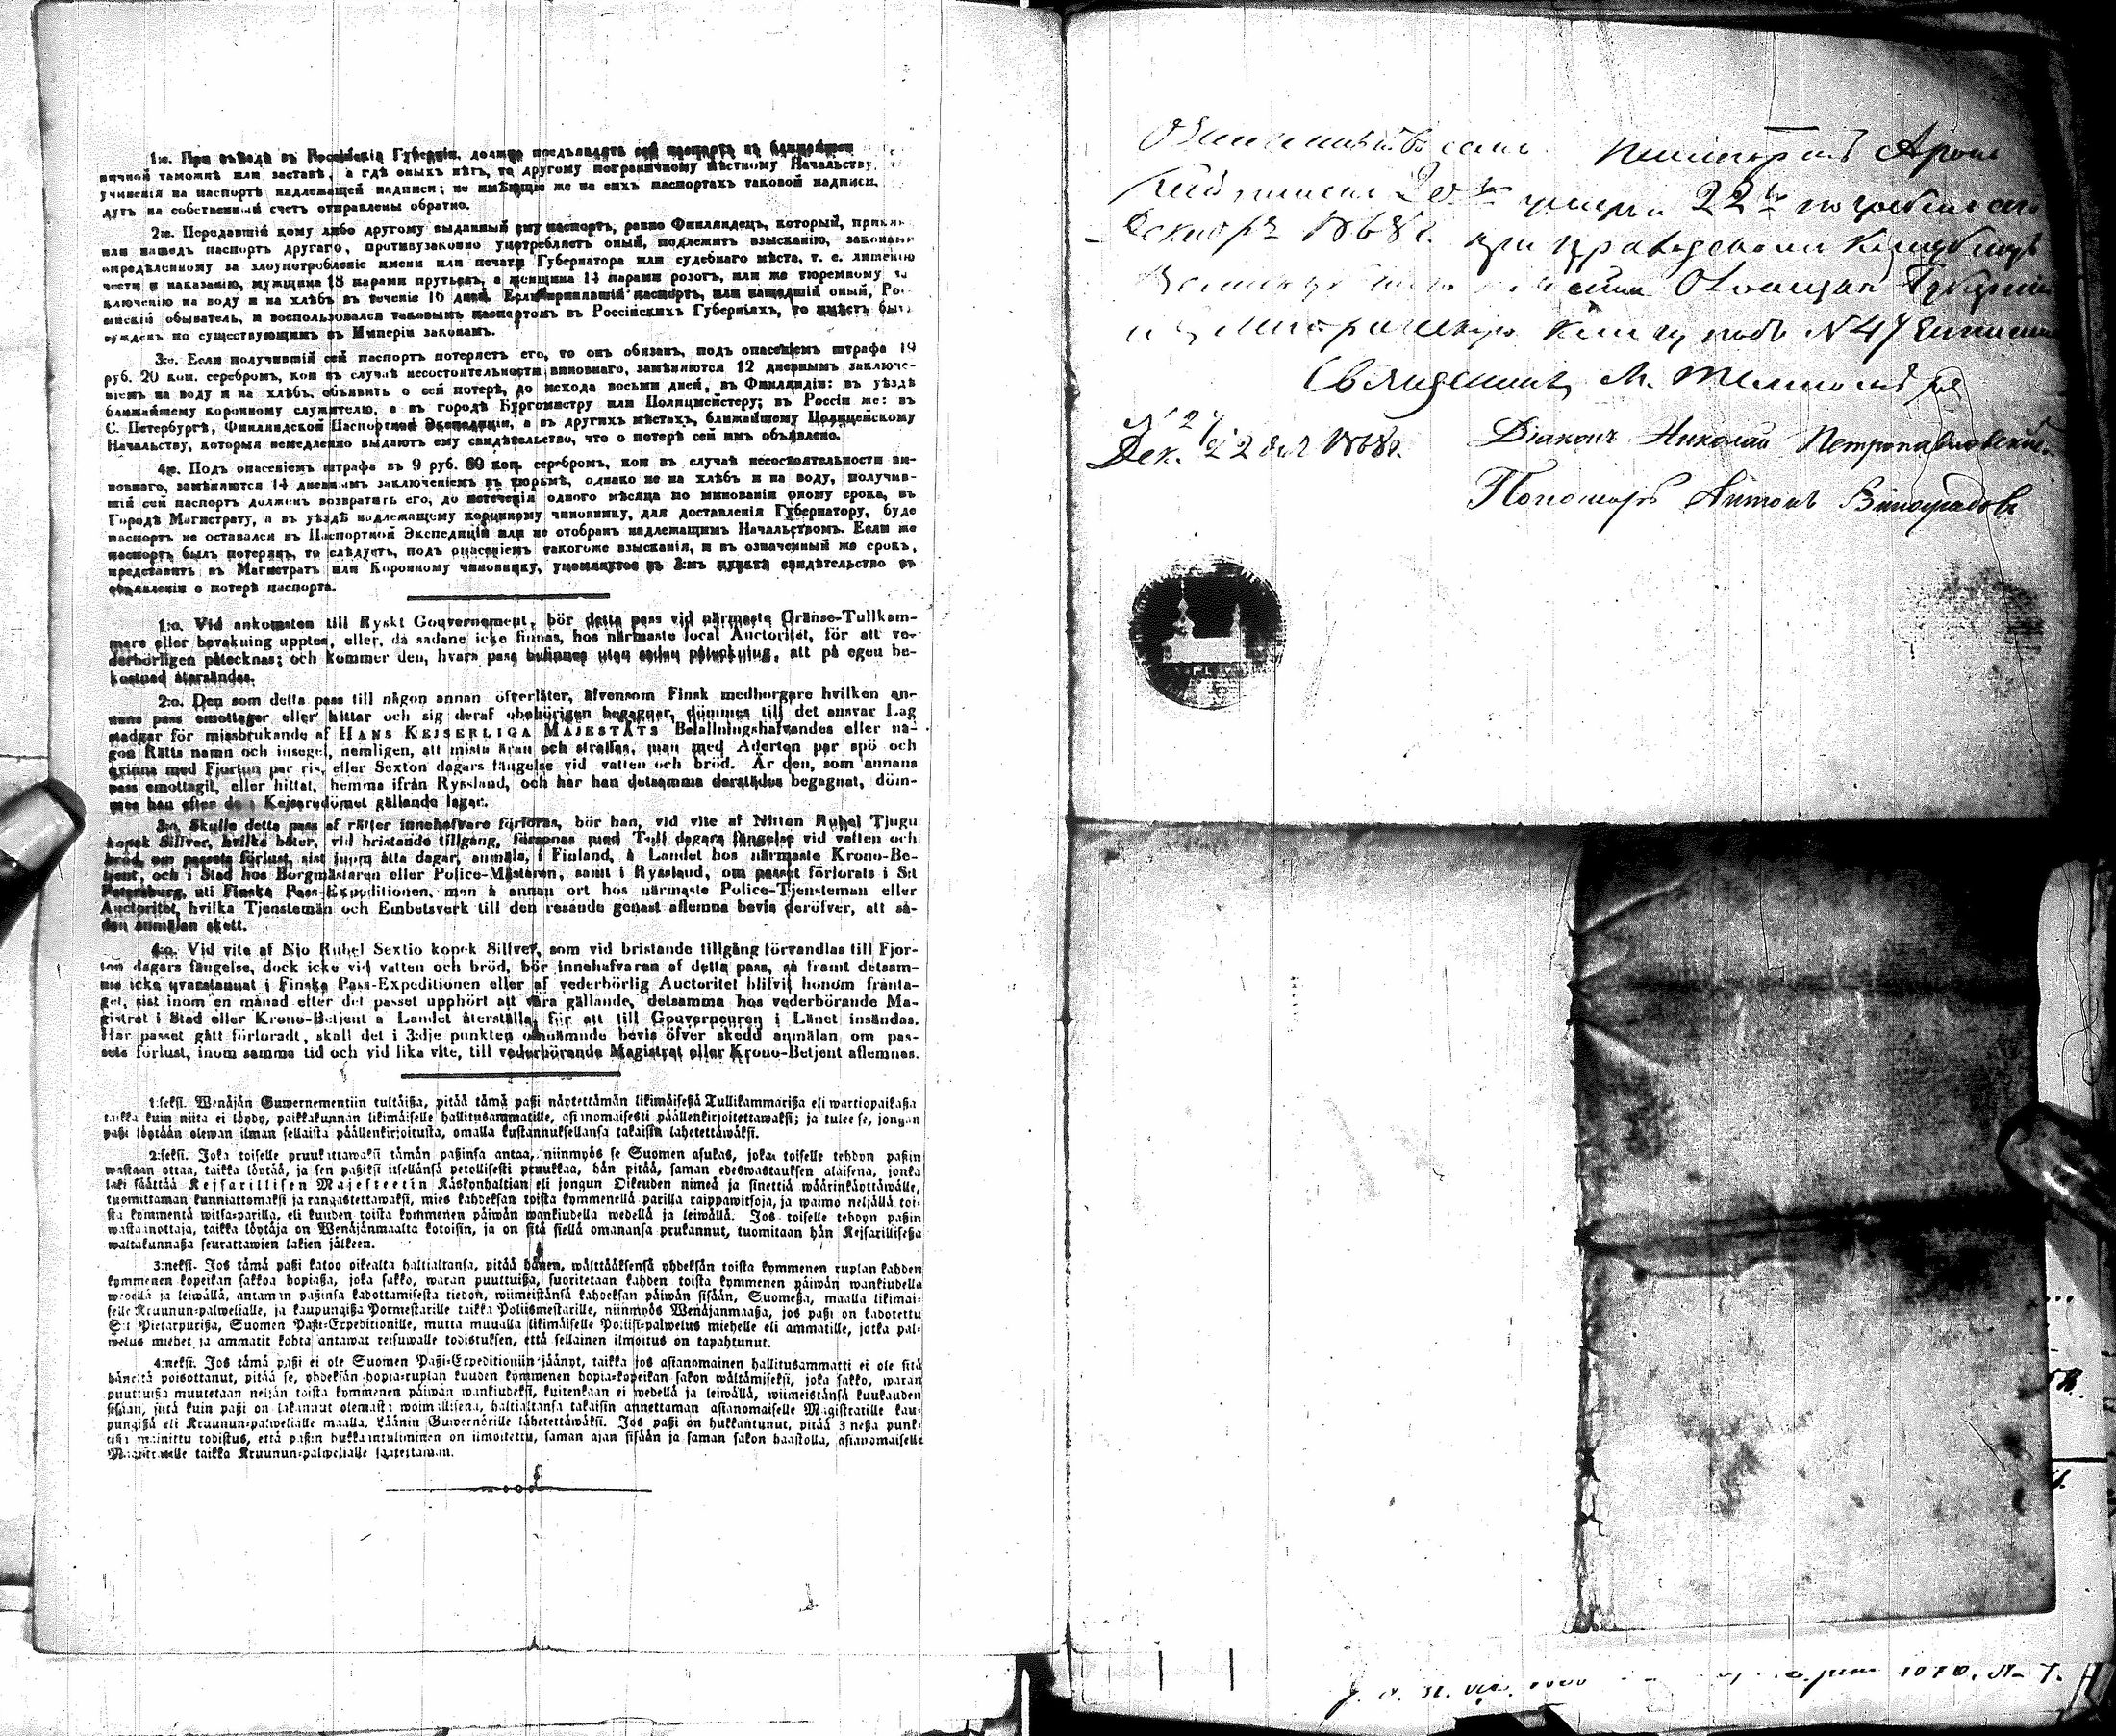 1:е. При въѣздѣ въ Россійскія Губерніи, должно предъявлять сей паспортъ въ ближайшей
ничной таможнѣ или заставѣ, а гдѣ оныхъ нѣтъ, то другому пограничному мѣстному Начальству,
учиненія на паспортѣ надлежащей надписи; не имѣющіе же на сихъ паспортахъ таковой надписи,
дутъ на собственный счетъ отправлены обратно.
2:е. Передавшій кому либо другому выданный ему паспортъ, равно Финляндецъ, который,
или нашедъ паспортъ другаго, противузаконно употребляетъ оный, подлежитъ взысканію, законами
опредѣленному за злоупотребленіе имени или печати Губернатора или судебнаго мѣста, т. е. лишенію
чести и наказанію, мужщина 18 парами прутьевъ, а женщина 14 парами розогъ, или же тюремному
ключенію на воду и на хлѣбъ въ теченіе 16 дней. Если принявшій паспортъ, или нашедшій оный,
сійскій обыватель, и воспользовался таковымъ паспортомъ въ Россійскихъ Губерніяхъ, то имѣетъ быть
сужденъ по существующимъ въ Имперіи законамъ.
3:е. Если получившій сей паспортъ потеряетъ его, то онъ обязанъ, подъ опасеніемъ штрафа 19
руб. 20 коп. серебромъ, кои въ случаѣ несостоятельности виновнаго, замѣняются 12 дневнымъ заключе-
ніемъ на воду и на хлѣбъ, объявить о сей потерѣ, до исхода восьми дней, въ Финляндіи: въ уѣздѣ
ближайшему коронному служителю, а въ городѣ Бургомистру или Полицмейстеру; въ Россіи же: въ
С. Петербургѣ, Финляндской Паспортной Экспедиціи, а въ другихъ мѣстахъ, ближайшему Полицейскому
Начальству, которыя немедленно выдаютъ ему свидѣтельство, что о потерѣ сей имъ объявлено.
4:е. Подъ опасеніемъ штрафа въ 9 руб. 60 коп. серебромъ, кои въ случаѣ несостоятельности ви-
новнаго, замѣняются 14 дневнымъ заключеніемъ въ тюрьмѣ, однако не на хлѣбъ и на воду, получив-
шій сей паспортъ долженъ возвратить его, до истеченія одного мѣсяца по минованіи оному срока, въ
Городѣ Магистрату, а въ уѣздѣ надлежащему коронному чиновнику, для доставленія Губернатору, буде
паспортъ не оставался въ Паспортной Экспедиціи или не отобранъ надлежащимъ Начальствомъ. Если же
паспортъ былъ потерянъ, то слѣдуетъ, подъ опасеніемъ такогоже взысканія, и въ означенный же срокъ,
представить въ Магистратъ или Коронному чиновнику, упомянутое въ 3:мъ пунктѣ свидѣтельство въ
объявленіи о потерѣ паспорта.
1:o. Vid ankomsten till Ryskt Gouvernement, bör detta pass vid närmaste Gränse-Tullkam-
mare eller bevakning upptes, eller, da sadane icke finnas, hos närmaste local Auctoritet, för att ve-
derbörligen påtecknas; och kommer den, hvars pass befinnes utan sådan påteckning, att på egen be-
kostnad återsändas.
2:o. Den som detta pass till någon annan öfverlåter, äfvensom Finsk medborgare hvilken an-
nans pass emottager eller hittar och sig deraf obehörigen begagnar, dömmes till det ansvar Lag
stadgar för missbrukande af HANS KEJSERLIGA MAJESTÄTS Befallningshafvandes eller nå-
gon Rätts namn och insegel, nemligen, att mista äran och straffas, man med Aderton par spö och
qvinna med Fjorton par ris, eller Sexton dagars fängelse vid vatten och bröd. Är den, som annans
pass emottagit, eller hittat, hemma ifrån Ryssland, och har han detsamma derstädes begagnat, döm-
mes han efter de i Kejsaredömet gällande lagar.
3:o. Skulle detta pass af rätter innehafvare förloras, bör han, vid vite af Nitton Rubel Tjugu
kopek Silfver, hvilka böter, vid bristande tillgång, försonas med Tolf dagars fängelse vid vatten och
bröd, om passets förlust, sist inom åtta dagar, anmäla, i Finland, å Landet hos närmaste Krono-Be-
tjent, och i Stad hos Borgmästaren eller Police-Mästaren, samt i Ryssland, om passet förlorats i S:t
Petersburg, uti Finska Pass-Expeditionen, men å annan ort hos närmaste Police-Tjensteman eller
Auctoritet, hvilka Tjenstemän och Embetsverk till den resande genast aflemna bevis deröfver, att så-
dan anmälan skett.
4:o. Vid vite af Nio Rubel Sextio kopek Silfver, som vid bristande tillgång förvandlas till Fjor-
ton dagars fängelse, dock icke vid vatten och bröd, bör innehafvaren af detta pass, så framt detsam-
ma icke qvarstannat i Finska Pass-Expeditionen eller af vederbörlig Auctoritet blifvit honom frånta-
get, sist inom en månad efter det passet upphört att vara gällande, detsamma hos vederbörande Ma-
gistrat i Stad eller Krono-Betjent a Landet återställa, för att till Gouverneuren i Länet insändas.
Har passet gått förloradt, skall det i 3:dje punkten omnämnde bevis öfver skedd anmälan om pas-
sets förlust, inom samma tid och vid lika vite, till vederbörande Magistrat eller Krono-Betjent aflemnas.
1:seksi. Wenäjän Guwernementiin tultäißa, pitää tämä paßi näytettämän likimäiseßä Tullikammarißa eli wartiopaikaßa
taikka kuin niitä ei löydy, paikkakunnan likimäiselle hallitusammatille, asianomaisesti päällenkirjoitettawaksi; ja tulee se, jongan
paßi löytään olewan ilman sellaista päällenkirjoitusta, omalla kustannuksellansa takaisin lähetettäwäksi.
2:seksi. Joka toiselle pruukattawaksi tämän paßinsa antaa, niinmyös se Suomen asukas, joka toiselle tehdyn paßin
wastaan ottaa, taikka löytää, ja sen paßiksi itsellänsä petollisesti pruukkaa, hän pitää, saman edeswastauksen alaisena, jonka
laki säättää Kejsarillisen Majesteetin Käskynhaltian eli jongun Oikeuden nimeä ja sinettiä wäärinkäyttäwälle,
tuomittaman kunniattomaksi ja rangastettawaksi, mies kahdeksan toista kymmenellä parilla raippawitsoja, ja waimo neljällä toi-
sta kymmentä witsa-parilla, eli kuuden toista kymmenen päiwän wankiudella wedellä ja leiwällä. Jos toiselle tehdyn paßin
wastainottaja, taikka löytäjä on Wenäjänmaalta kotoisin, ja on sitä siellä omanansa prukannut, tuomitaan hän Kejsarillisesßa
waltakunnaßa seurattawien lakien jälkeen.
3:neksi. Jos tämä paßi katoo oikealta haltialtansa, pitää hänen, wälttääksensä yhdeksän toista kymmenen ruplan kahden
kymmenen kopeikan sakkoa hopiaßa, joka sakko, waran puuttuißa, suoritetaan kahden toista kymmenen päiwän wankiudella
wedellä ja leiwällä, antaman paßinsa kadottamisesta tiedon, wiimeistänsä kahdeksan päiwän sisään, Suomeßa, maalla likimäi-
selle Kruunun-palwelialle, ja kaupungißa Pormestarille taikka Poliismestarille, niinmyös Wenäjanmaaßa, jos paßi on kadotettu
S:t Pietarpurißa, Suomen Paßi-Expeditionille, mutta muualla likimäiselle Poliisi-palwelus miehelle eli ammatille, jotka pal-
welus miehet ja ammatit kohta antawat reisuwalle todistuksen, että sellainen ilmoitus on tapahtunut.
4:neksi. Jos tämä paßi ei ole Suomen Paßi-Expeditioniin jäänyt, taikka jos asianomainen hallitusammatti ei ole sitä
häneltä poisottanut, pitää se, yhdeksän hopia-ruplan kuuden kymmenen hopia-kopeikan sakon wältämiseksi, joka sakko, waran
puuttuißa muutetaan neljän toista kymmenen päiwän wankiudeksi, kuitenkaan ei wedellä ja leiwällä, wiimeistänsä kuukauden
sisään, siitä kuin paßi on lakannut olemasta woimallisena, haltialtansa takaisin annettaman asianomaiselle Magistratille kau-
pungißa eli Kruunun-palwelialle maalla, Läänin Guwernörille lähetettäwäksi. Jos paßi on hukkantunut, pitää 3:neßa punk-
tißa mainittu todistus, että paßin hukkaantuliminen on ilmoitettu, saman ajan sisään ja saman sakon haastolla, asianomaiselle
Magistratille taikka Kruunun-palwelialle saatettaman.
Аронъ
20го умеръ и 22го
Декабря 1868г. при
Губерніи
книгу подъ N 47
Священникъ М.
N 27
Дек. 22 дня 1868г. Діаконъ Николай Петропавловскій.
Пономарь Антонъ Виноградовъ